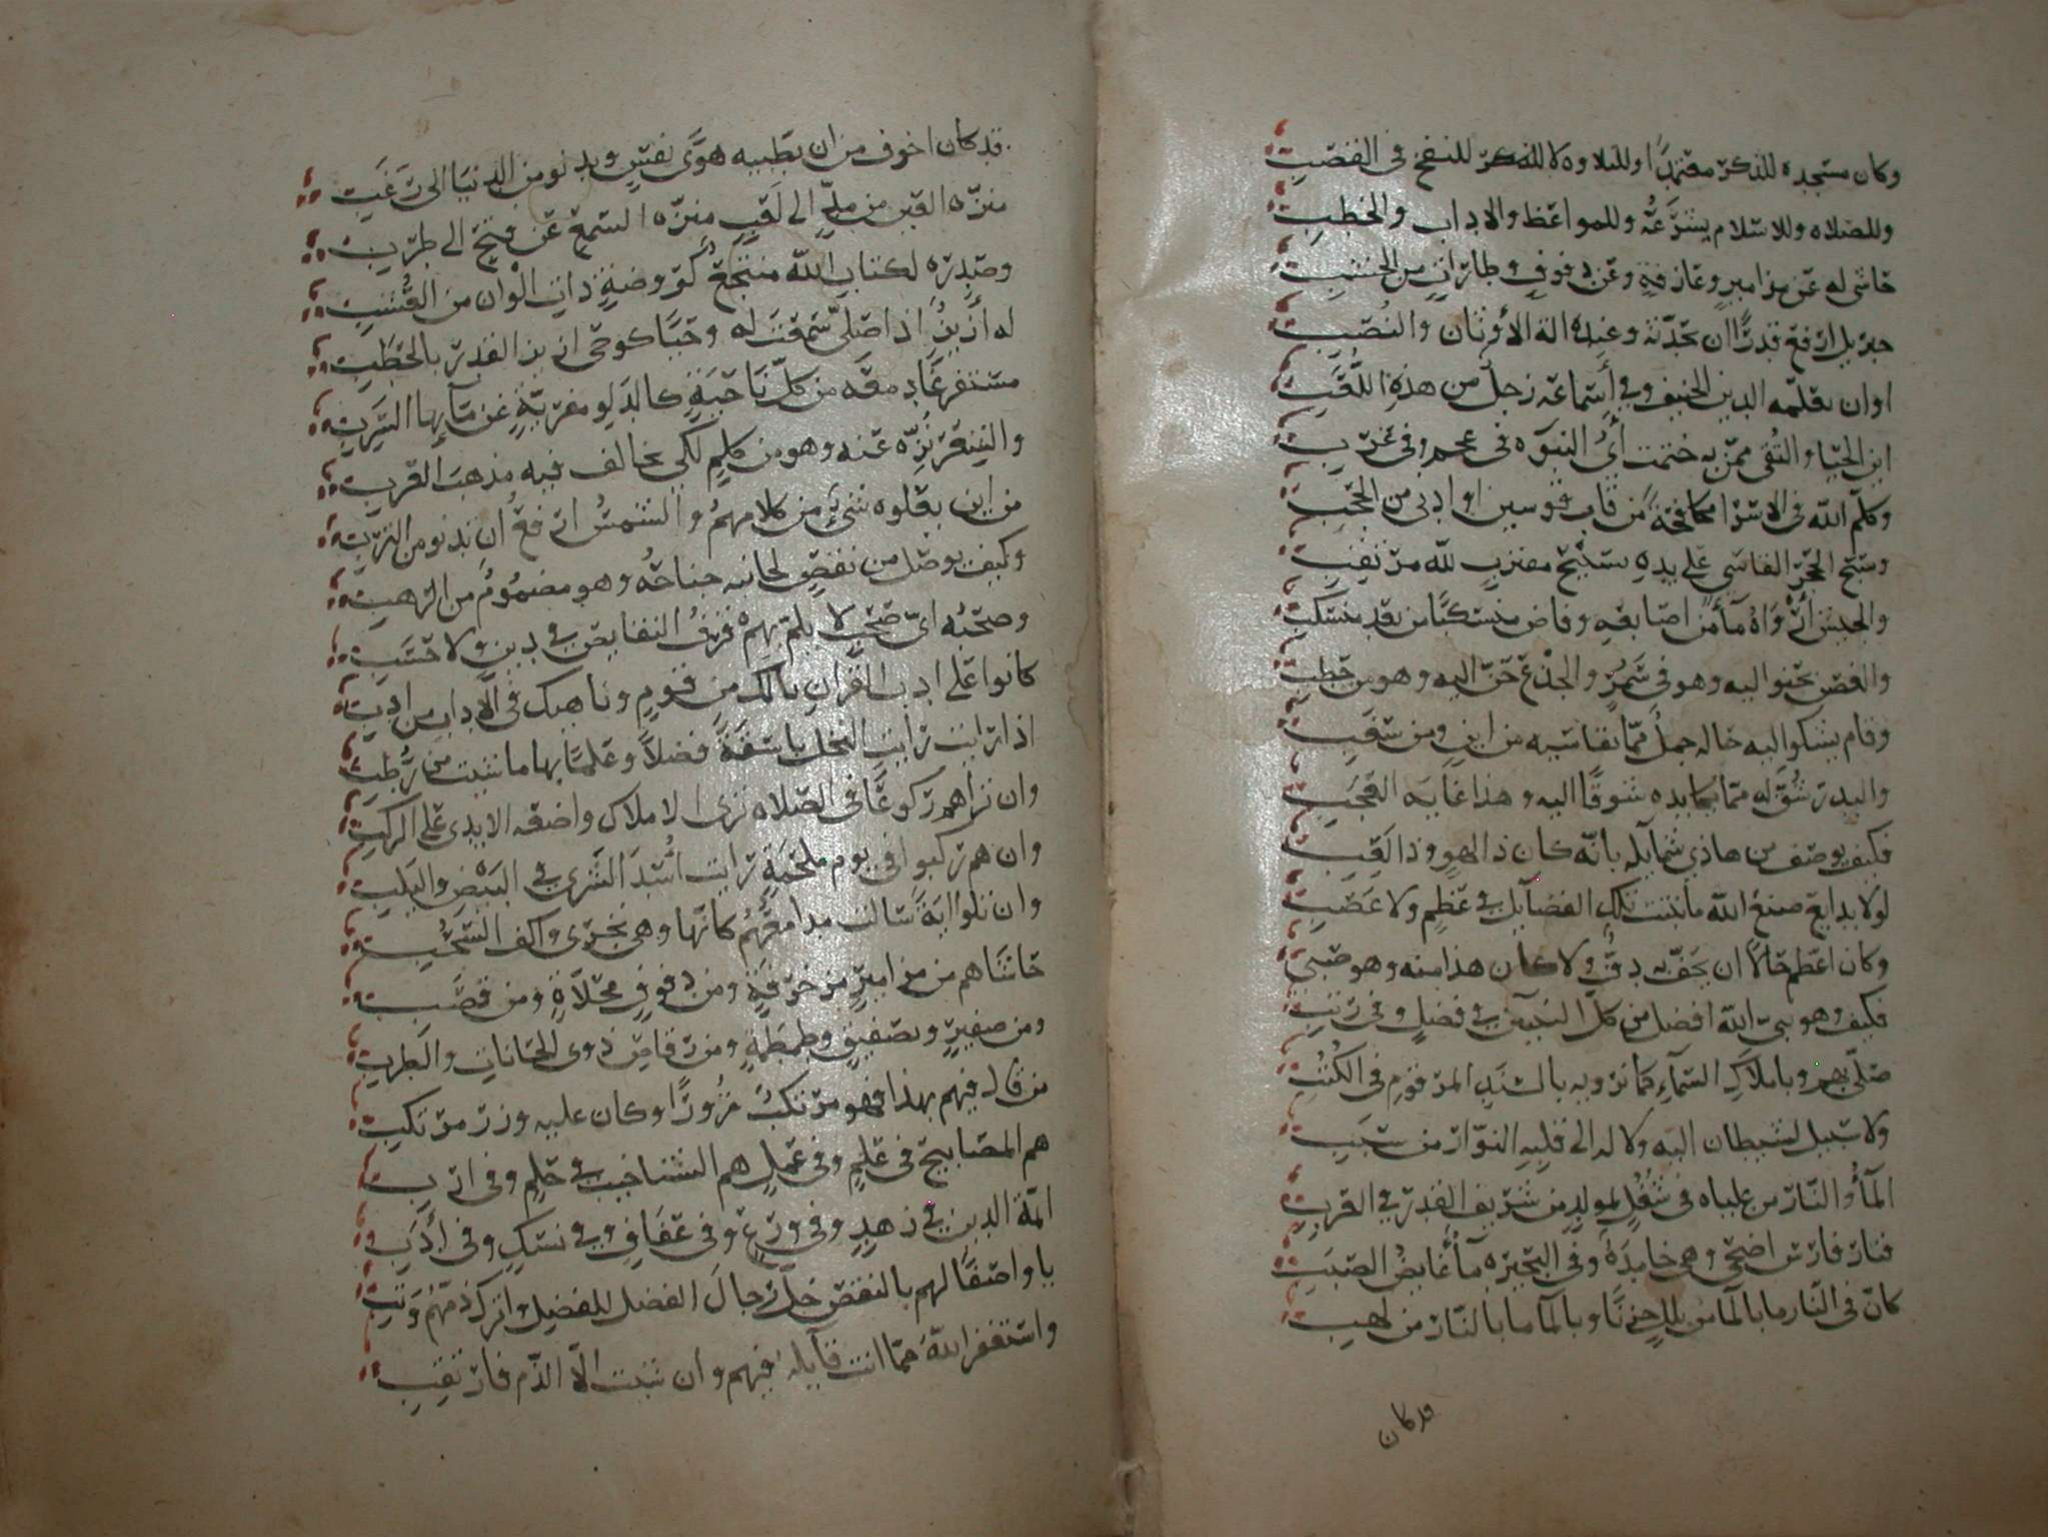 وكان مسجده للذكر معتمدا وللتلاوه لا للنفخ في القصب
وللصلاه وللاسلام يشرعه وللمواعظ والاداب والخطب
حاشى له عن مزامير وعازفة وعن دفوف وطارات من الخشب
جبريل ارفع قدرا ان تحدثه وعنده الة الأوثان والنصب
اوان يعلمه الدين الحنيف وفي أسماعه زجل من هذه اللعب
اين الحيا والتقى ممن به ختمت أي النبوه في عجم وفي عرب
وكلم الله في الاسرا مكافحة من قاب قوسين او ادنى من الحجب
وسبح الحجر القاسي على يده تسبيح مقترب لله مرتقب
والجيش أرواه مآ من اصابعه وفاض منسكبا من بعد منسكب
والغصن يحنوا اليه وهو في ثمر والجذع حن اليه وهو من حطب
وقام يشكوا اليه حاله جمل مما يقاسيه من اين ومن تعب
والبدر شق له مما يكابده شوقا اليه وهذا غاية العجب
فكيف يوصف من هاذي شمايله بانه كان ذا لهو وذا لعب
لولا بدايع صنع الله ما نبتت تلك الفضآيل في عظم ولا عصب
وكان اعظم حالا ان يحف به دف ولا كان هذا منه وهو صبي
فكيف وهو نبي الله افضل من كل النبيين في فضل وفي رتب
صلى بهم وباملاك السمآء فما نروبه بالسند المرقوم في الكتب
ولا سبيل لشيطان اليه ولا له الى قلبه النوار من سبب
المآ والنار من علياه في شغل لمولد من شريف القدر في العرب
فنار فارس اضحى وهي خامدة وفي البحيره مآ غايض الصبب
كان في النار ما بالمآ من بلل حزنا وبالمآ ما بالنار من لهب
قد كان
قد كان اخوف من ان يطبيه هوى نفس ويدنو من الدنيا الى رغب
منزه العين من ملح الى لعب منزه السمع عن فتح الى طرب
وصدره لكتاب الله منتجع كروضة ذات الوان من القشب
له أزيز اذا صلى سمعت له وحيا كوحي ازيز القدر بالحطب
مستفرغا دمعه من كل ناحية كالدلو مفرية عن مآيها السرب
والشعر نزه عنه وهو من كلم لكي يخالف فيه مذهب العرب
من اين يعلوه شيء من كلامهم والشمس ارفع أن تدنو من الترب
وكيف يوصل من نقص لجانبه جناحه وهو مضموم من الرهب
وصحبه اي صحب لا يلم بهم قرف النقايص في دين ولا حسب
كانوا على ادب القرآن يالك من قوم وناهيك في الآداب من ادب
اذا رايت رايت النخل باسقة فضلا وعلما بها ما شيت من رطب
وان تراهم ركوعا في الصلاه ترى الاملاك واضعه الايدي على الركب
وان هم ركبوا في يوم ملحمة رايت اسد الشرى في البيض واليلب
وان تلوا اية سالت مدامعهم كانها وهي تجري واكف السحب
حاشاهم من مزامير مزخرفة ومن دفوف محلاة ومن قصب
ومن صفير وتصفيق وطمطمة ومن رقاص ذوي اللحانات والطرب
من قال فيهم بهذا فهو مرتكب زورا وكان عليه وزر مرتكب
هم المصابيح في علم وفي عمل هم الشناخيب في حلم وفي ارب
ايمة الدين في زهد وفي ورع وفي عفاف وفي نسك وفي أدب
يا واصفا لهم بالنقص خل رجال الفضل للفضل واترك ذمهم وتب
واستغفر الله مما انت قآيله فيهم وان شيت الا الذم فارتقب